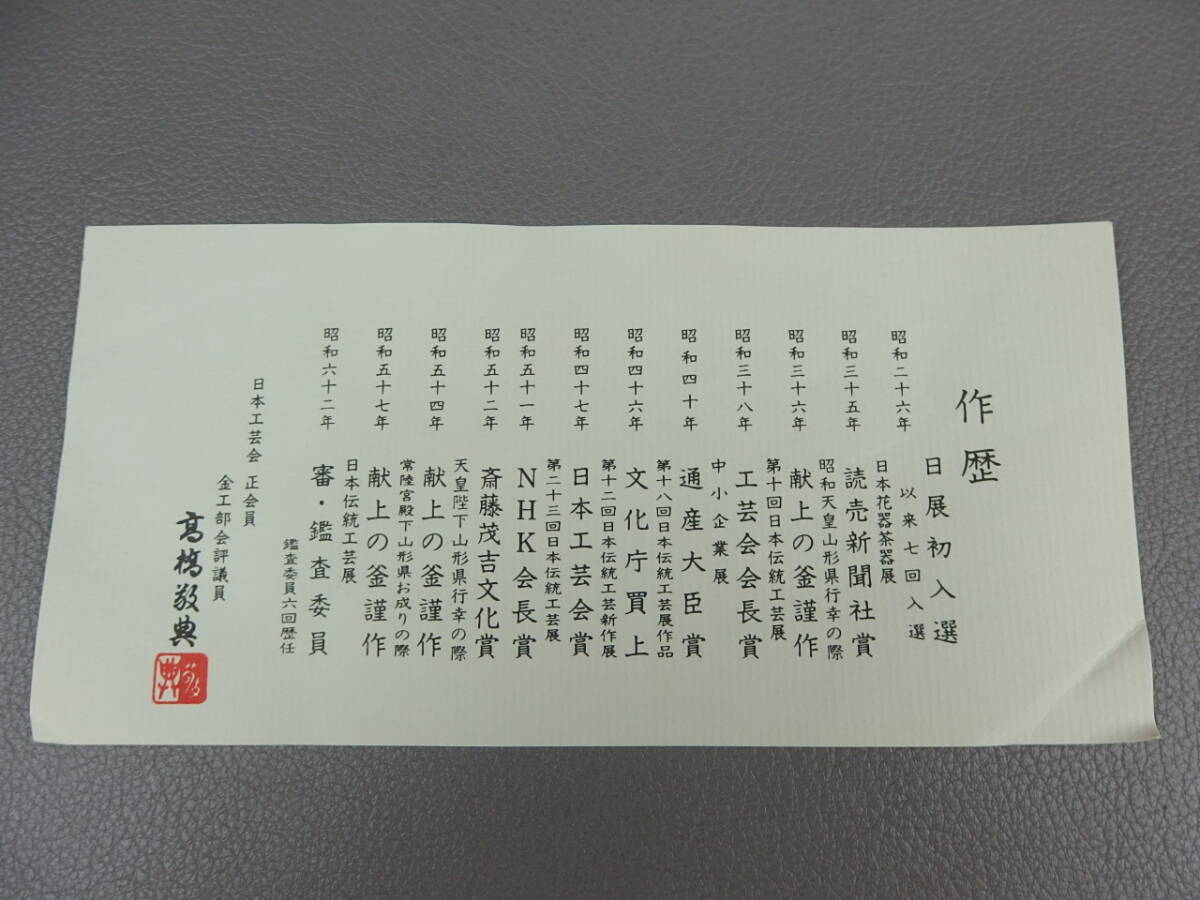 作歴
昭和二十六年 日展初入選
以来七回入選
日本花器茶器展
昭和三十五年 読売新聞社賞
昭和天皇山形県行幸の際
昭和三十六年 献上の釜謹作
第十回日本伝統工芸展
昭和三十八年 工芸会会長賞
中小企業展
昭和四十年 通産大臣賞
第十八回日本伝統工芸展作品
昭和四十六年 文化庁買上
第十二回日本伝統工芸新作展
昭和四十七年 日本工芸会賞
第二十三回日本伝統工芸展
昭和五十一年 NHK会長賞
昭和五十二年 斎藤茂吉文化賞
天皇陛下山形県行幸の際
昭和五十四年 献上の釜謹作
常陸宮殿下山形県お成りの際
昭和五十七年 献上の釜謹作
日本伝統工芸展
昭和六十二年 審・鑑査委員
鑑査委員六回歴任
日本工芸会 正会員
金工部会評議員
高橋敬典